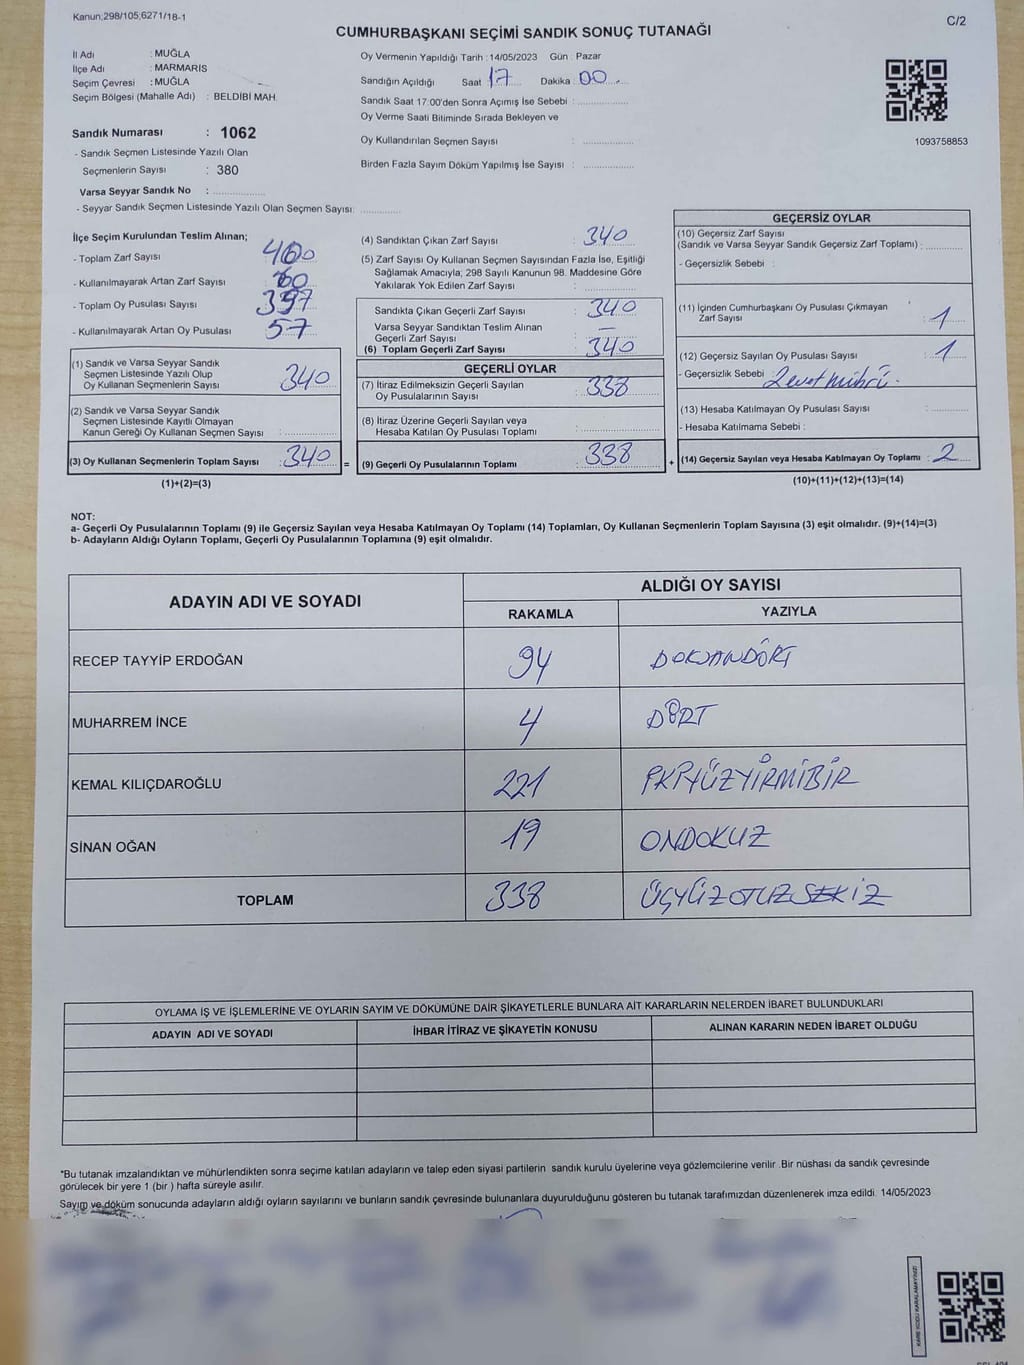 Kanun;298/105;6271/18-1
C/2
CUMHURBAŞKANI SEÇİMİ SANDIK SONUÇ TUTANAĞI
İl Adı : MUĞLA
İlçe Adı : MARMARİS
Seçim Çevresi : MUĞLA
Seçim Bölgesi (Mahalle Adı) : BELDİBİ MAH.
Sandık Numarası : 1062
- Sandık Seçmen Listesinde Yazılı Olan
Seçmenlerin Sayısı : 380
Varsa Seyyar Sandık No :
- Seyyar Sandık Seçmen Listesinde Yazılı Olan Seçmen Sayısı:
Oy Vermenin Yapıldığı Tarih : 14/05/2023 Gün : Pazar
Sandığın Açıldığı Saat 17 Dakika 00
Sandık Saat 17:00'den Sonra Açımış İse Sebebi :
Oy Verme Saati Bitiminde Sırada Bekleyen ve
Oy Kullandırılan Seçmen Sayısı :
Birden Fazla Sayım Döküm Yapılmış İse Sayısı :
1093758853
İlçe Seçim Kurulundan Teslim Alınan;
- Toplam Zarf Sayısı 400
- Kullanılmayarak Artan Zarf Sayısı 60
- Toplam Oy Pusulası Sayısı 397
- Kullanılmayarak Artan Oy Pusulası 57
(1) Sandık ve Varsa Seyyar Sandık
Seçmen Listesinde Yazılı Olup
Oy Kullanan Seçmenlerin Sayısı 340
(2) Sandık ve Varsa Seyyar Sandık
Seçmen Listesinde Kayıtlı Olmayan
Kanun Gereği Oy Kullanan Seçmen Sayısı :
(3) Oy Kullanan Seçmenlerin Toplam Sayısı : 340 =
(1)+(2)=(3)
(4) Sandıktan Çıkan Zarf Sayısı : 340
(5) Zarf Sayısı Oy Kullanan Seçmen Sayısından Fazla İse, Eşitliği
Sağlamak Amacıyla; 298 Sayılı Kanunun 98. Maddesine Göre
Yakılarak Yok Edilen Zarf Sayısı :
Sandıkta Çıkan Geçerli Zarf Sayısı : 340
Varsa Seyyar Sandıktan Teslim Alınan
Geçerli Zarf Sayısı : —
(6) Toplam Geçerli Zarf Sayısı : 340
GEÇERLİ OYLAR
(7) İtiraz Edilmeksizin Geçerli Sayılan
Oy Pusulalarının Sayısı : 338
(8) İtiraz Üzerine Geçerli Sayılan veya
Hesaba Katılan Oy Pusulası Toplamı :
(9) Geçerli Oy Pusulalarının Toplamı : 338 +
GEÇERSİZ OYLAR
(10) Geçersiz Zarf Sayısı
(Sandık ve Varsa Seyyar Sandık Geçersiz Zarf Toplamı) :
- Geçersizlik Sebebi :
(11) İçinden Cumhurbaşkanı Oy Pusulası Çıkmayan
Zarf Sayısı : 1
(12) Geçersiz Sayılan Oy Pusulası Sayısı : 1
- Geçersizlik Sebebi : 2 evet mührü.
(13) Hesaba Katılmayan Oy Pusulası Sayısı :
- Hesaba Katılmama Sebebi :
(14) Geçersiz Sayılan veya Hesaba Katılmayan Oy Toplamı : 2
(10)+(11)+(12)+(13)=(14)
NOT:
a- Geçerli Oy Pusulalarının Toplamı (9) ile Geçersiz Sayılan veya Hesaba Katılmayan Oy Toplamı (14) Toplamları, Oy Kullanan Seçmenlerin Toplam Sayısına (3) eşit olmalıdır. (9)+(14)=(3)
b- Adayların Aldığı Oyların Toplamı, Geçerli Oy Pusulalarının Toplamına (9) eşit olmalıdır.
ADAYIN ADI VE SOYADI
ALDIĞI OY SAYISI
RAKAMLA YAZIYLA
RECEP TAYYİP ERDOĞAN 94 DOKSANDÖRT
MUHARREM İNCE 4 DÖRT
KEMAL KILIÇDAROĞLU 221 İKİYÜZYİRMİBİR
SİNAN OĞAN 19 ONDOKUZ
TOPLAM 338 ÜÇYÜZOTUZSEKİZ
OYLAMA İŞ VE İŞLEMLERİNE VE OYLARIN SAYIM VE DÖKÜMÜNE DAİR ŞİKAYETLERLE BUNLARA AİT KARARLARIN NELERDEN İBARET BULUNDUKLARI
ADAYIN ADI VE SOYADI İHBAR İTİRAZ VE ŞİKAYETİN KONUSU ALINAN KARARIN NEDEN İBARET OLDUĞU
*Bu tutanak imzalandıktan ve mühürlendikten sonra seçime katılan adayların ve talep eden siyasi partilerin sandık kurulu üyelerine veya gözlemcilerine verilir .Bir nüshası da sandık çevresinde
görülecek bir yere 1 (bir ) hafta süreyle asılır.
Sayım ve döküm sonucunda adayların aldığı oyların sayılarını ve bunların sandık çevresinde bulunanlara duyurulduğunu gösteren bu tutanak tarafımızdan düzenlenerek imza edildi. 14/05/2023
KARE KODU KARALAMAYINIZ!